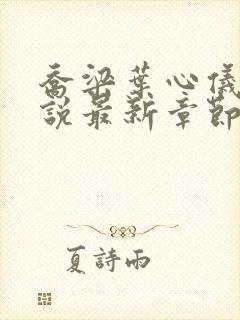 喬梁葉心儀
說最新章節
夏詩雨